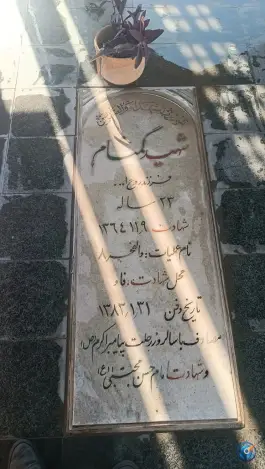 شهید گمنام
فرزند روح ا...
۲۳ ساله
شهادت ۱۳۶۴/۱۱/۹
نام عملیات: والفجر ۸
محل شهادت: فاو
تاریخ دفن ۱۳۸۳/۱/۳۱
مصادف با سالروز رحلت پیامبر اکرم (ص)
و شهادت امام حسن مجتبی (ع)